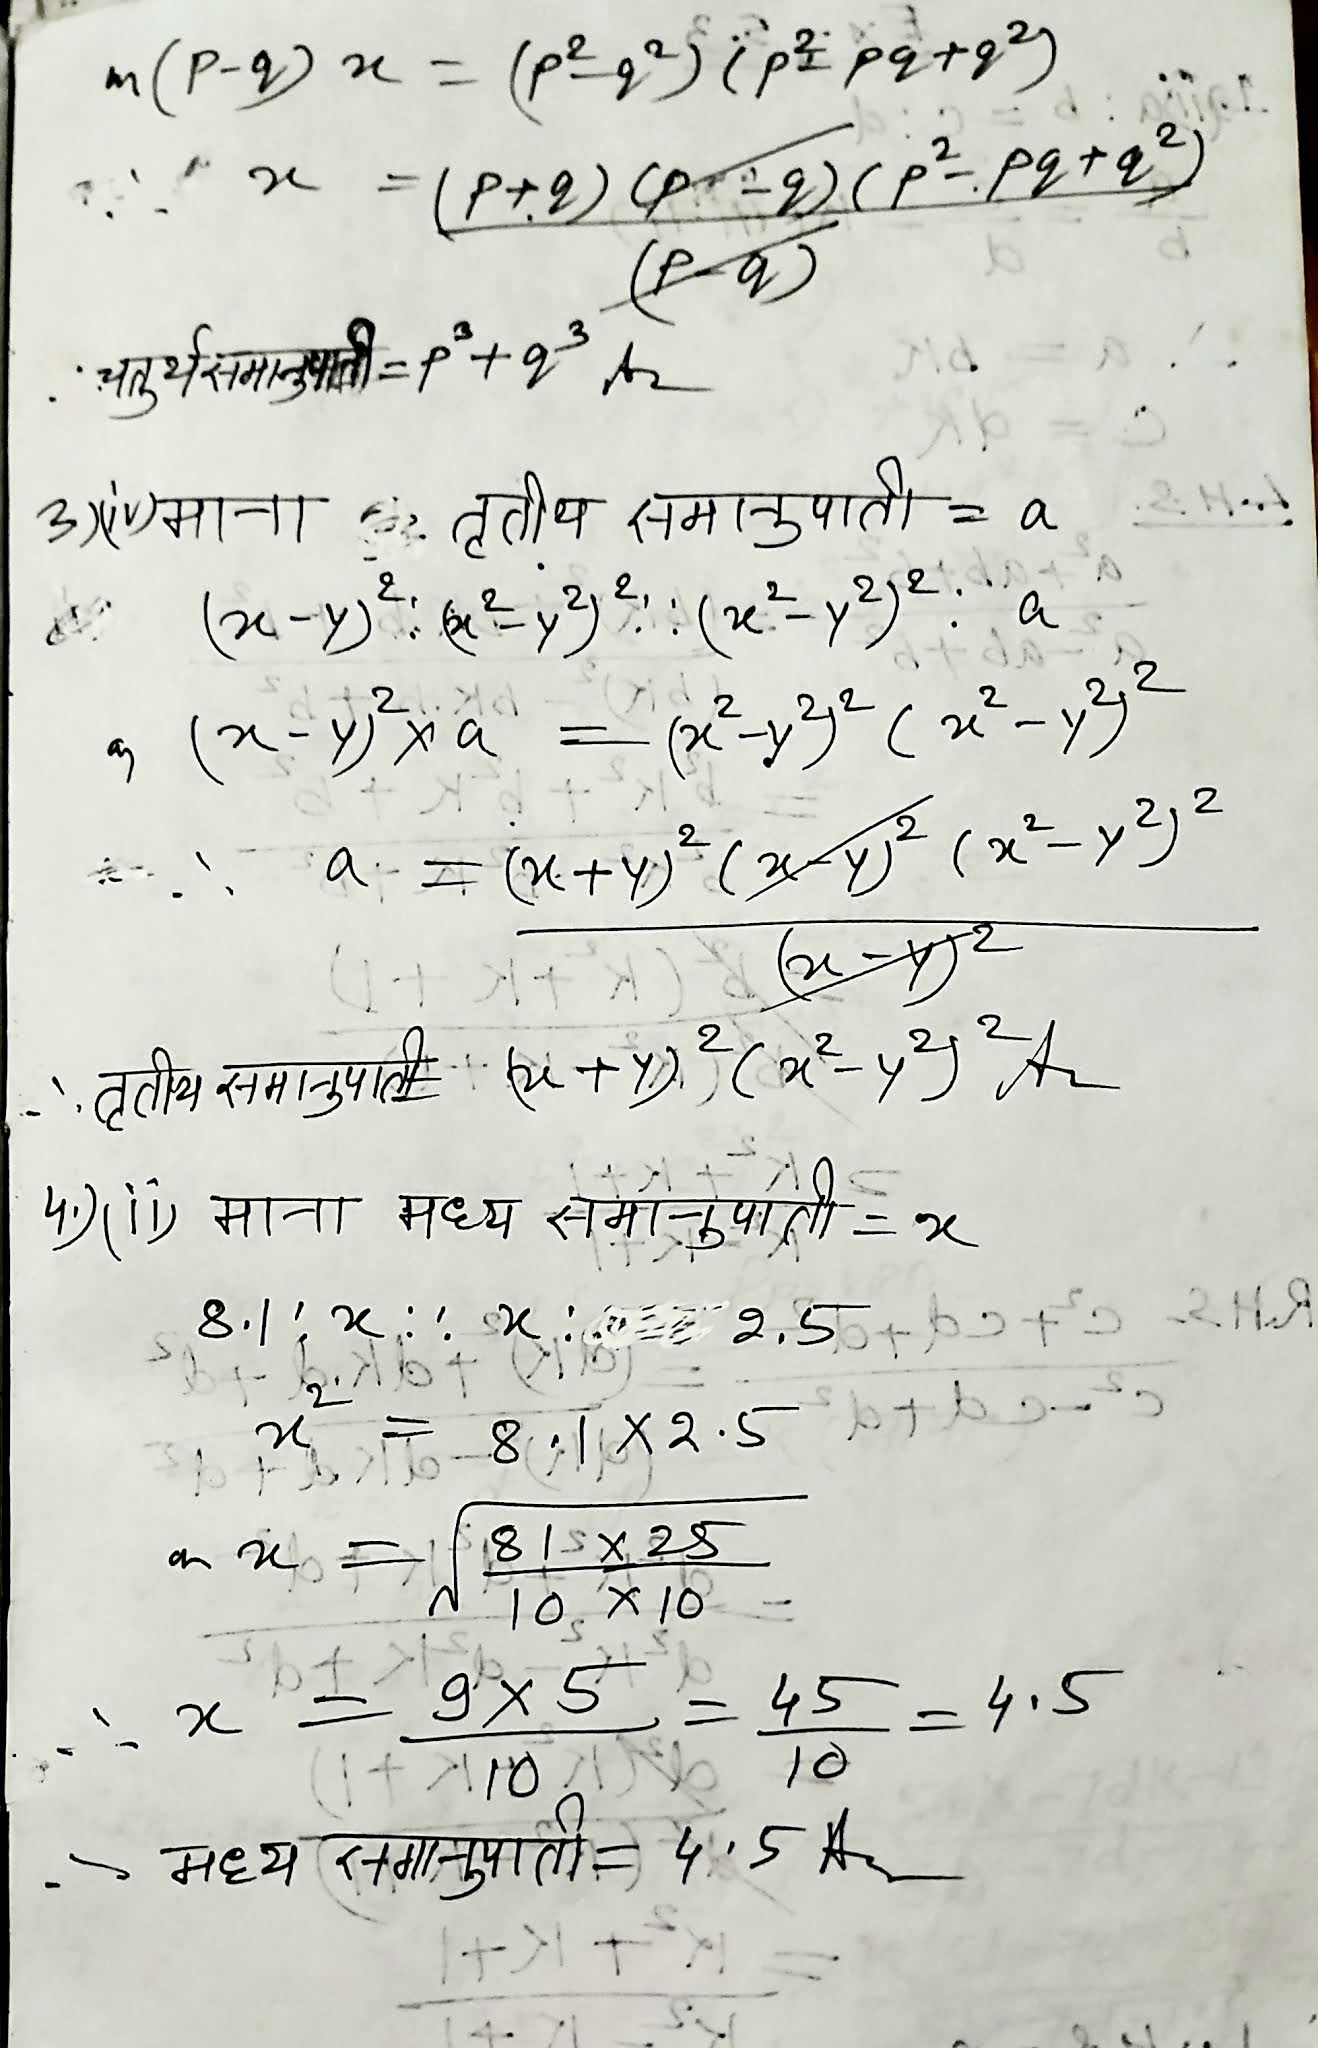 or (p-q) x = (p²-q²) (p²- pq+q²)
∴ x = (p+q) (p-q) (p²- pq+q²)
(p-q)
∴ चतुर्थ समानुपाती = p³ + q³ Ans
3)(iv) माना तृतीय समानुपाती = a
(x-y)² : (x²-y²)² :: (x²-y²)² : a
or (x-y)² × a = (x²-y²)² (x²-y²)²
∴ a = (x+y)² (x-y)² (x²-y²)²
(x-y)²
∴ तृतीय समानुपाती = (x+y)² (x²-y²)² Ans
4.)(ii) माना मध्य समानुपाती = x
8.1 : x :: x : 2.5
x² = 8.1 × 2.5
or x = √81 × 25
10 × 10
∴ x = 9×5 = 45 = 4.5
10 10
∴ मध्य समानुपाती = 4.5 Ans